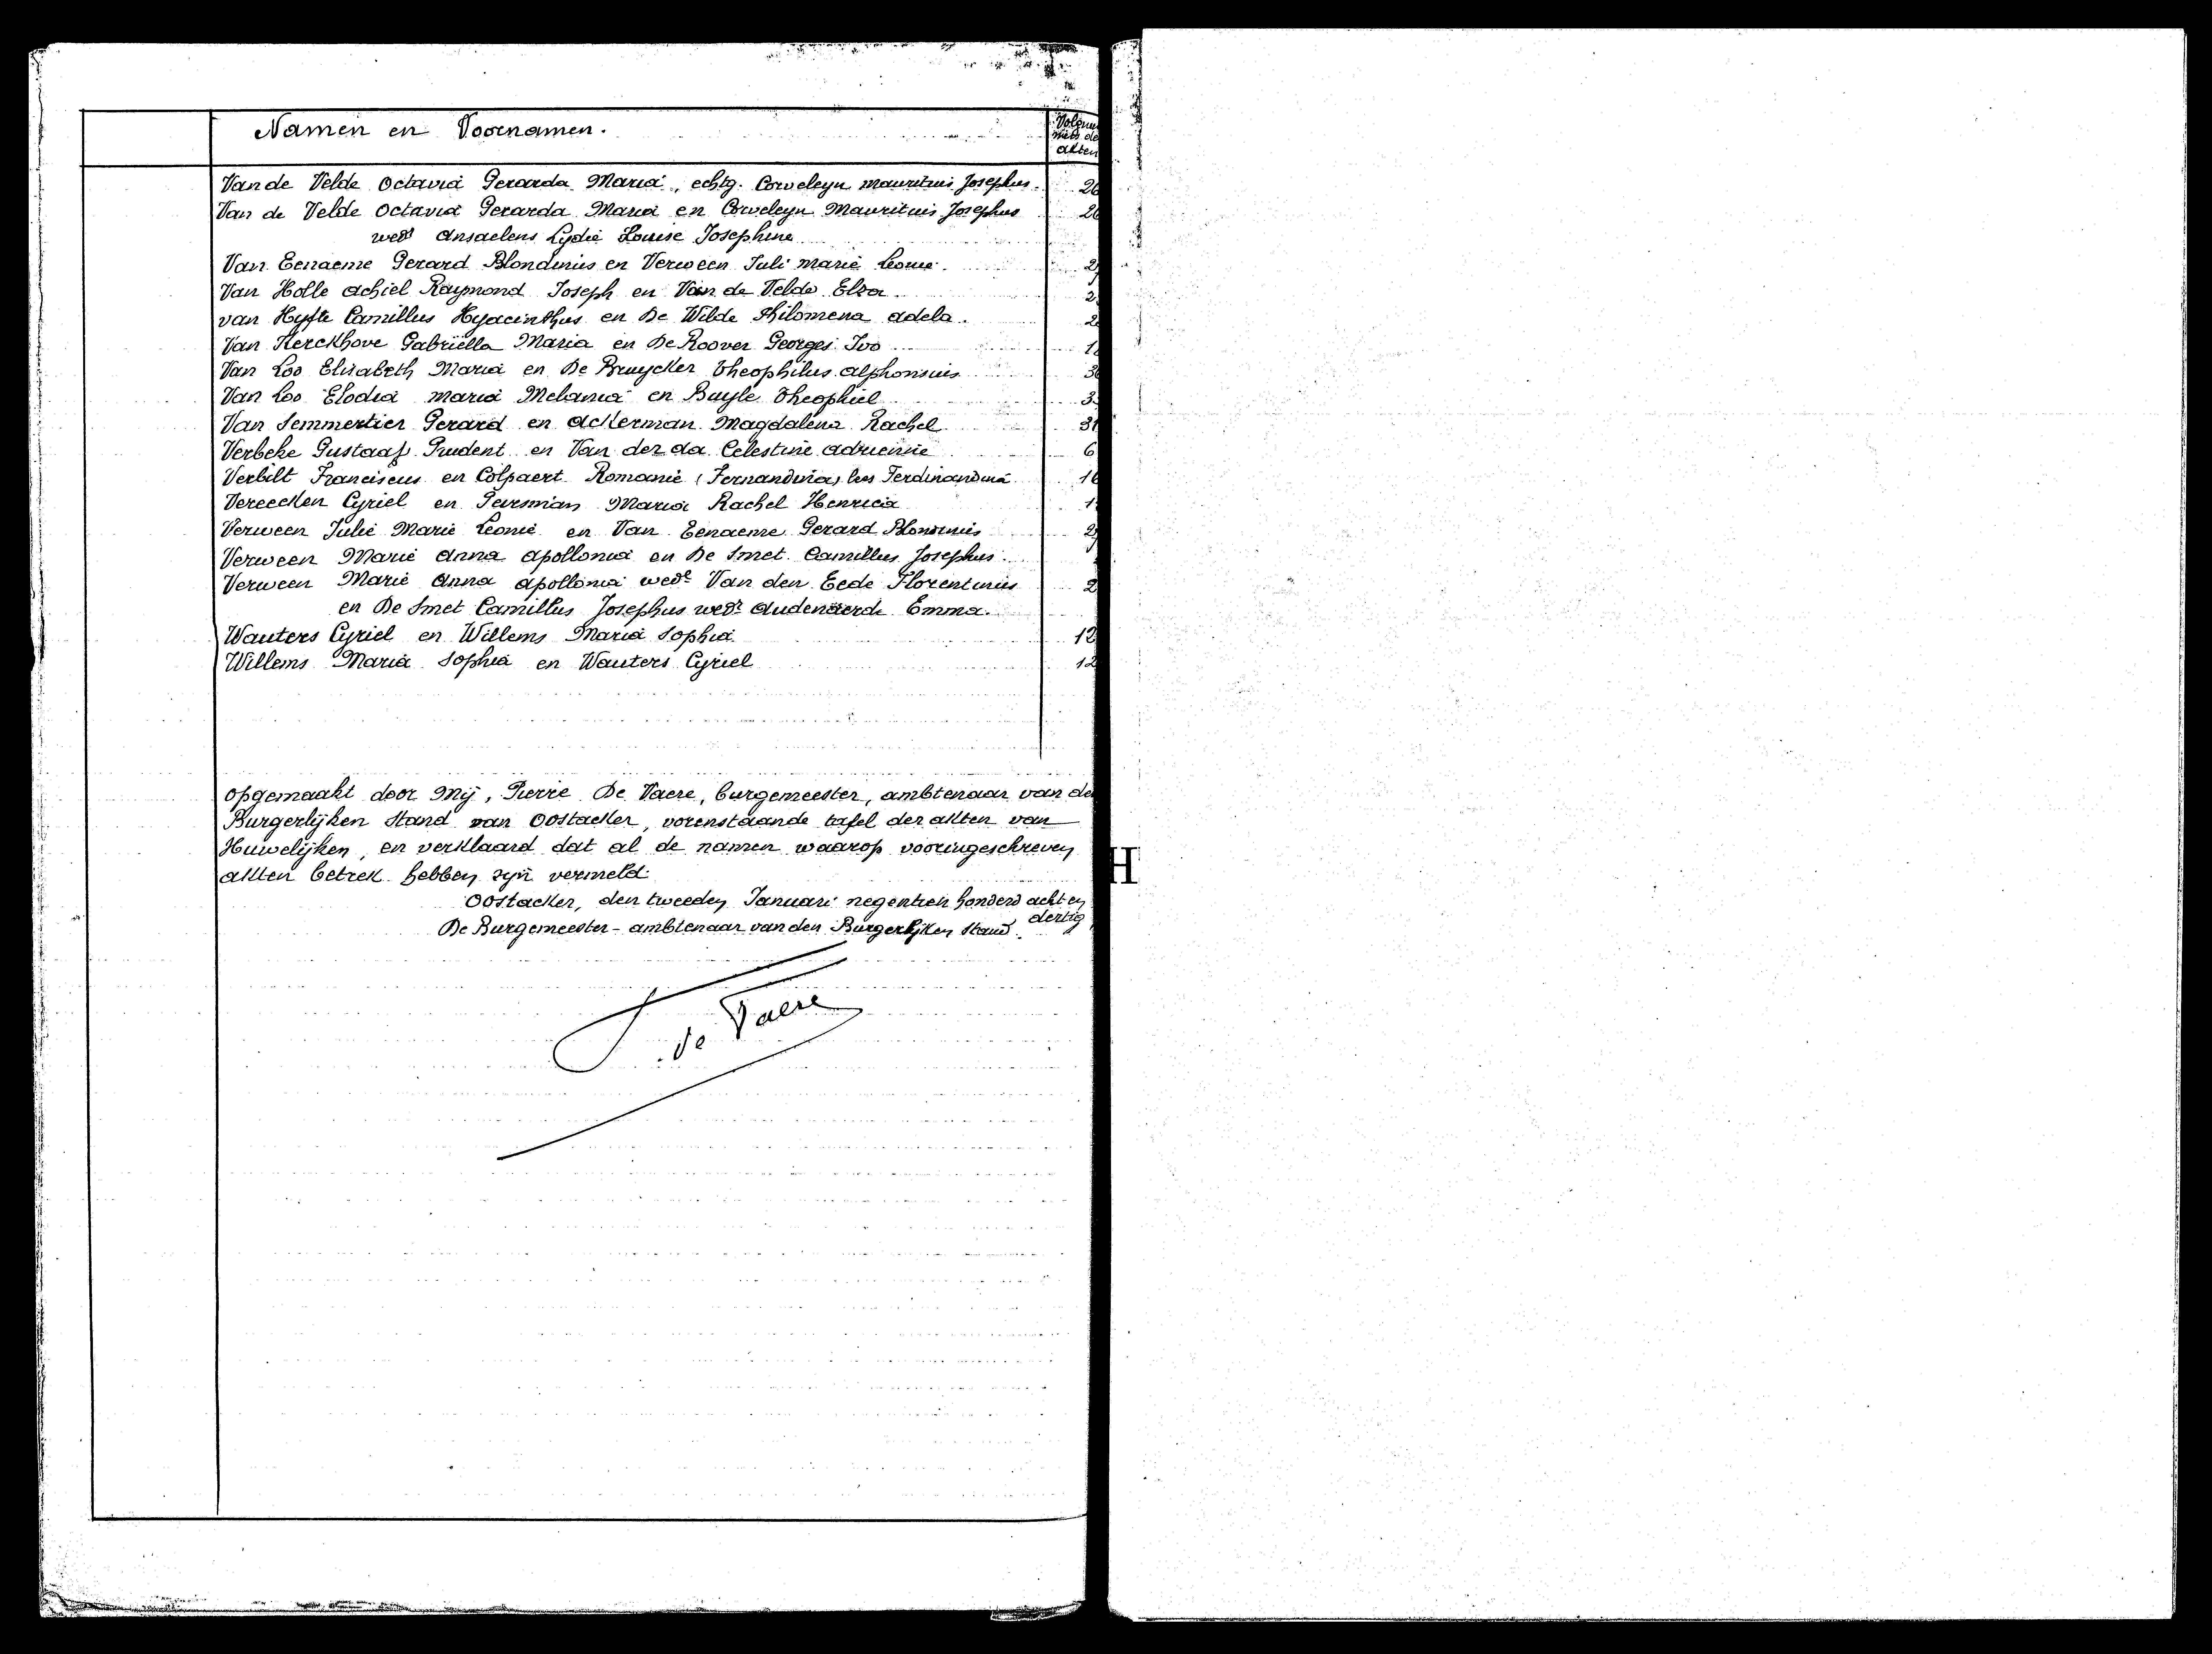 Namen en Voornamen.
akten
Van de Velde Octavia Gerarda Maria, echtg. Corveleyn Mauritius Josephus. 26
Van de Velde Octavia Gerarda Maria en Corveleyn Mauritius Josephus 26
wedr Ansaelens Lydie Louise Josephine
Van Eenaeme Gerard Blondinus en Verween Juli Marie Leonie. 2
Van Holle Achiel Raymond Joseph en Van de Velde Elza 2
van Hyfte Camillus Hyacinthus en De Wilde Philomena Adela. 2
Van Kerckhove Gabriëlla Maria en De Roover Georges Ivo 1
Van Loo Elisabeth Maria en De Bruycker Theophilus Alphonsius 3
Van Loo Elodia Maria Melania en Buyle Theophiel 3
Van Semmertier Gerard en Ackerman Magdalena Rachel 31
Verbeke Gustaaf Prudent en Van der da Celestine Adrienne 6
Verbilt Franciscus en Colpaert Romanie (Fernandina) lees Ferdinandina 16
Vereecken Cyriel en Maria Rachel Henrica 1
Verween Julie Marie Leonie en Van Eenaeme Gerard Blondinus 2
Verween Marie Anna Apollonia en De Smet Camillus Josephus.
Verween Marie Anna Apollonia wede Van den Eede Florentinus 2
en De Smet Camillus Josephus wedr Audenaerde Emma.
Wauters Cyriel en Willems Maria Sophia. 12
Willems Maria Sophia en Wauters Cyriel 12
Opgemaakt door Mij, Pierre De Vaere, burgemeester, ambtenaar van de
Burgerlijken Stand van Oostacker, vorenstaande tafel der akten van
Huwelijken, en verklaard dat al de namen waarop vooringeschreven
akten betrek hebben zijn vermeld.
Oostacker, den tweeden Januari negentien honderd acht en
dertig
De Burgemeester - ambtenaar van den Burgerlijken Stand.
de Vaere
H